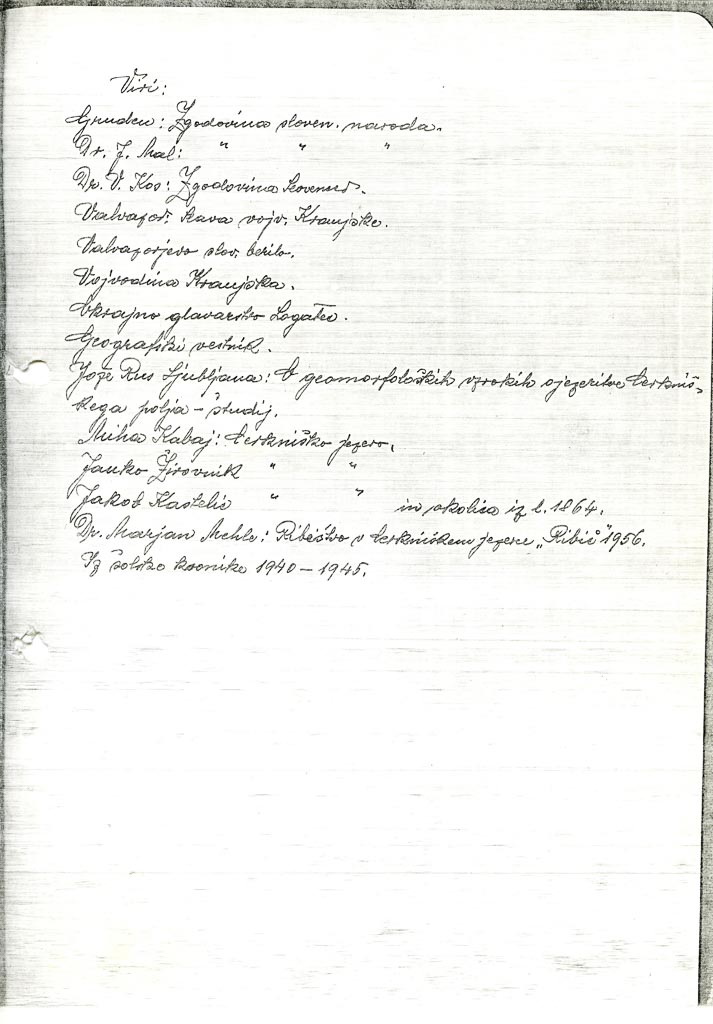 Viri:
Gruden: Zgodovina sloven. naroda.
Dr. J. Mal: " " "
Dr. V. Kos: Zgodovina Slovencev.
Valvazor. Slava vojv. Kranjske.
Valvazorjevo slov. berilo.
Vojvodina Kranjska.
Okrajno glavarstvo Logatec.
Geografski vestnik.
Jože Rus Ljubljana: O geomorfoloških vzrokih ojezeritve Cerkniš-
kega polja – študij.
Miha Kabaj: Cerkniško jezero.
Janko Žirovnik " "
Jakob Kastelic " " in okolica iz l. 1864.
Dr. Marjan Mehle: Ribištvo v Cerkniškem jezeru „Ribič" 1956.
Iz šolske kronike 1940 – 1945.